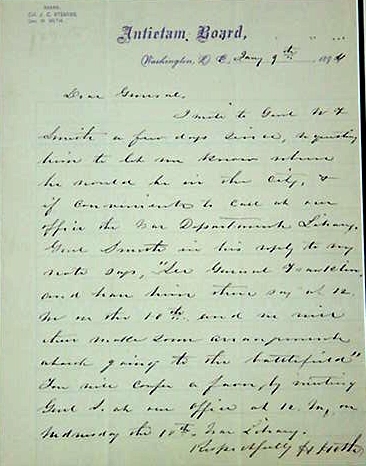 BOARD.
Col. J. C. STEARNS.
Gen. H. HETH.
Antietam Board,
Washington, D. C. Jany 9th 1894
Dear General.
I wrote to Genl W F
Smith a few days since, requesting
him to let me know when
he would be in the City, &
if convenient to call at our
office the War Department Library.
Genl Smith in his reply to my
note says, "See General Franklin,
and have him then say at 12.
M on the 10th and we will
then make some arrangements
about going to the battlefield"
You will confer a favor, by meeting
Genl S. at our office at 12. M, on
Wednesday the 10th War Library.
Respectfully H Heth